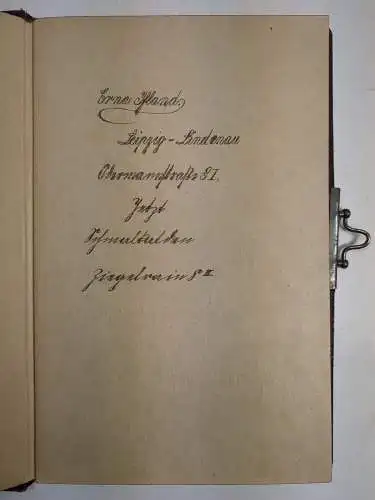 Erna Ifland.
Leipzig - Lindenau
Odermannstraße 8 I.
Jetzt
Schmalkalden
Ziegelrain 8 II